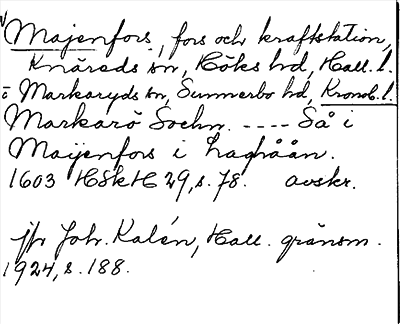 Majenfors, fors och kraftstation,
Knäreds sn, Höks hd, Hall. l.
ö Markaryds sn, Sunnerbo hd, Kronob. l.
Markarö Sochn. ---- Så i
Maijenfors i Lagåån.
1603 HSkH 29, s. 78. avskr.
jfr Joh. Kalén, Hall. gränsm.
1924, s. 188.